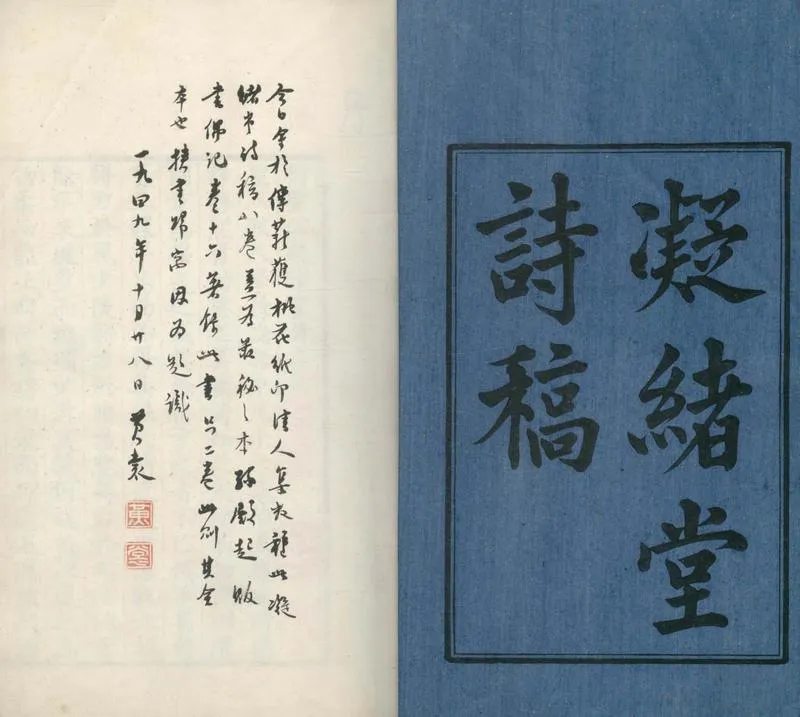 凝緒堂
詩稿
今日於傳薪獲桃花紙印佳人集此凝
緒堂詩稿八卷蓋為最秘之本孫殿起販
書偶記卷十六著錄此書只二卷此則其全
本也挾書歸寓因為題識
一九四九年十月廿八日 黃裳
黃
裳